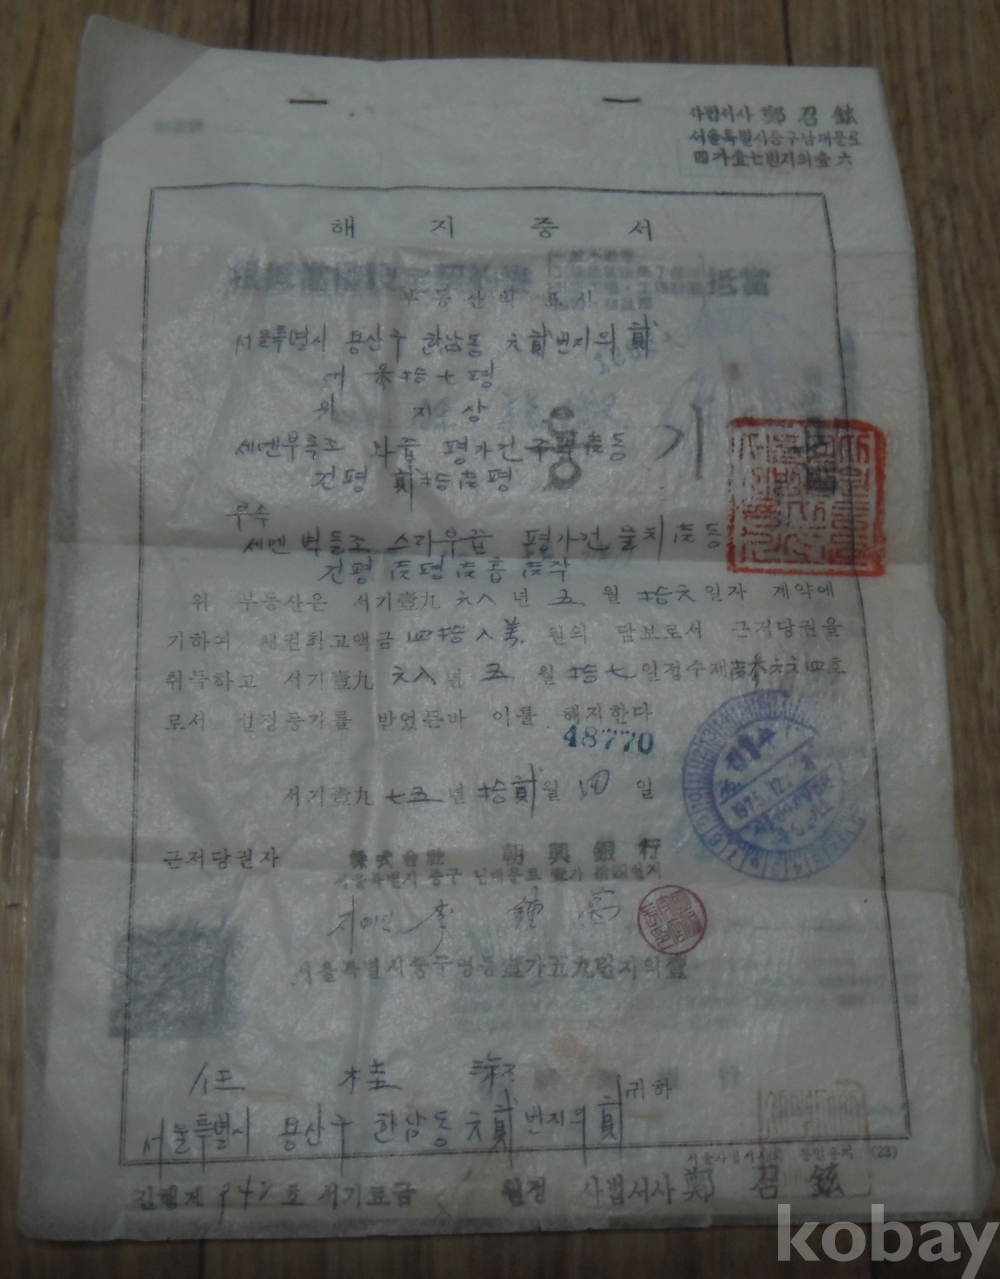 사법서사 鄭召鉉
서울특별시중구남대문로
四가壹七번지의壹六
해 지 증 서
부동산의 표시
서울특별시 용산구 한남동 六貳번지의 貳
대 参拾七평
위 지상
세멘부록조 나급 평가건 동
건평 貳拾壱평
부속
세멘벽돌조 스라부급 평가건 물치 壱동
건평 壱평壱홉壱작
등 기
위 부동산은 서기壹九六八년 五월 拾六일자 계약에
기하여 채권최고액금 四拾八萬 원의 담보로서 근저당권을
취득하고 서기壹九六八년 五월 拾七일접수제 四호
로서 설정등기를 받었든바 이를 해지한다
48770
서기壹九七五년 拾貳월 四일
근저당권자 株式會社 朝興銀行
서울특별시 중구 남대문로 壹가 拾四번지
지배인 李 鍾
서울특별시중구명동壹가五九번지의壹
任 桂 淑 귀하
서울특별시 용산구 한남동 六貳번지의 貳
서울사법서사회 정일용지 (23)
진행제 942호 서기료금 원정 사법서사 鄭召鉉
kobay